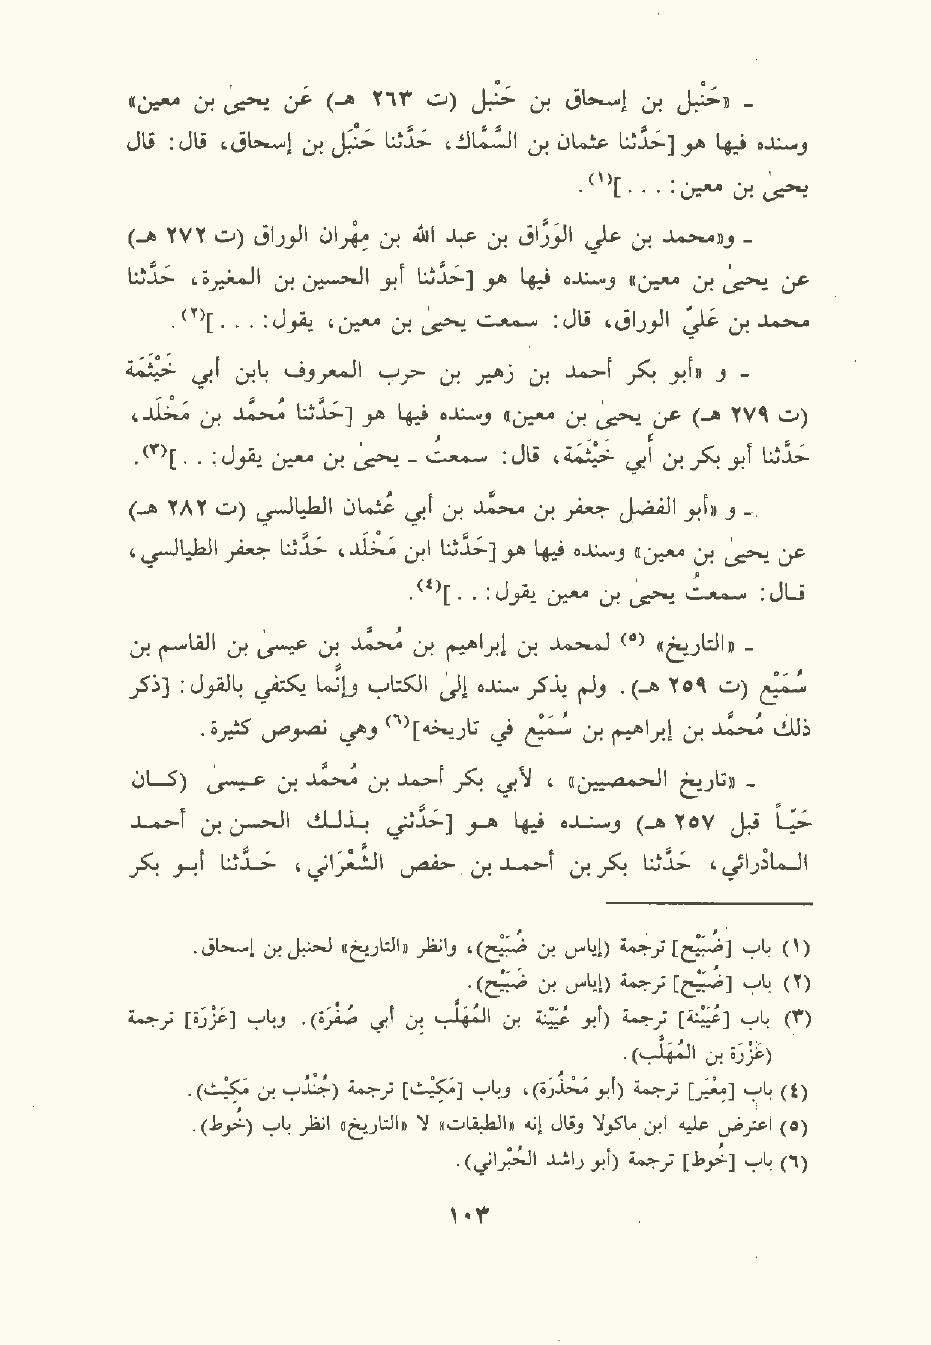 - «حَنْبَل بن إسحاق بن حَنْبَل (ت ٢٦٣ هـ) عَن يحيىٰ بن معين»
وسنده فيها هو [حَدَّثنا عثمان بن السَّمَّاك، حَدَّثنا حَنْبَل بن إسحاق، قال: قال
يحيىٰ بن معين: . . . ](١).
- و«محمد بن علي الوَرَّاق بن عبد الله بن مِهْران الوراق (ت ٢٧٢ هـ)
عن يحيىٰ بن معين» وسنده فيها هو [حَدَّثنا أبو الحسين بن المغيرة، حَدَّثنا
محمد بن عَليّ الوراق، قال: سمعت يحيىٰ بن معين، يقول: . . . ](٢).
- و «أبو بكر أحمد بن زهير بن حرب المعروف بابن أبي خَيْثَمَة
(ت ٢٧٩ هـ) عن يحيىٰ بن معين» وسنده فيها هو [حَدَّثنا مُحمد بن مَخْلَد،
حَدَّثنا أبو بكر بن أبي خَيْثَمَة، قال: سمعتُ - يحيىٰ بن معين يقول: . . ](٣).
- و «أبو الفضل جعفر بن محمَّد بن أبي عُثمان الطيالسي (ت ٢٨٢ هـ)
عن يحيىٰ بن معين» وسنده فيها هو [حَدَّثنا ابن مَخْلَد، حَدَّثنا جعفر الطيالسي،
قال: سمعتُ يحيىٰ بن معين يقول: . . ](٤).
- «التاريخ» (٥) لمحمد بن إبراهيم بن مُحمَّد بن عيسىٰ بن القاسم بن
سُمَيْع (ت ٢٥٩ هـ). ولم يذكر سنده إلىٰ الكتاب وإنَّما يكتفي بالقول: [ذكر
ذلك مُحمَّد بن إبراهيم بن سُمَيْع في تاريخه](٦) وهي نصوص كثيرة.
- «تاريخ الحمصيين» ، لأبي بكر أحمد بن مُحمَّد بن عيسىٰ (كان
حَيّاً قبل ٢٥٧ هـ) وسنده فيها هو [حَدَّثني بذلك الحسن بن أحمد
المادْرائي، حَدَّثنا بكر بن أحمد بن حفص الشَّعْرَاني، حَدَّثنا أبو بكر
(١) باب [ضُبَيْح] ترجمة (إياس بن ضُبَيْح)، وانظر «التاريخ» لحنبل بن إسحاق.
(٢) باب [ضُبَيْح] ترجمة (إياس بن ضُبَيْح).
(٣) باب [عُيَيْنة] ترجمة (أبو عُيَيْنة بن المُهَلَّب بن أبي صُفْرَة). وباب [عَزْرَة] ترجمة
(عَزْرَة بن المُهَلَّب).
(٤) باب [مِعْيَر] ترجمة (أبو مَحْذَرَة)، وباب [مَكِيْث] ترجمة (جُنْدُب بن مَكِيْث).
(٥) اعترض عليه ابن ماكولا وقال إنه «الطبقات» لا «التاريخ» انظر باب (خُوط).
(٦) باب [خُوط] ترجمة (أبو راشد الحُبْراني).
١٠٣